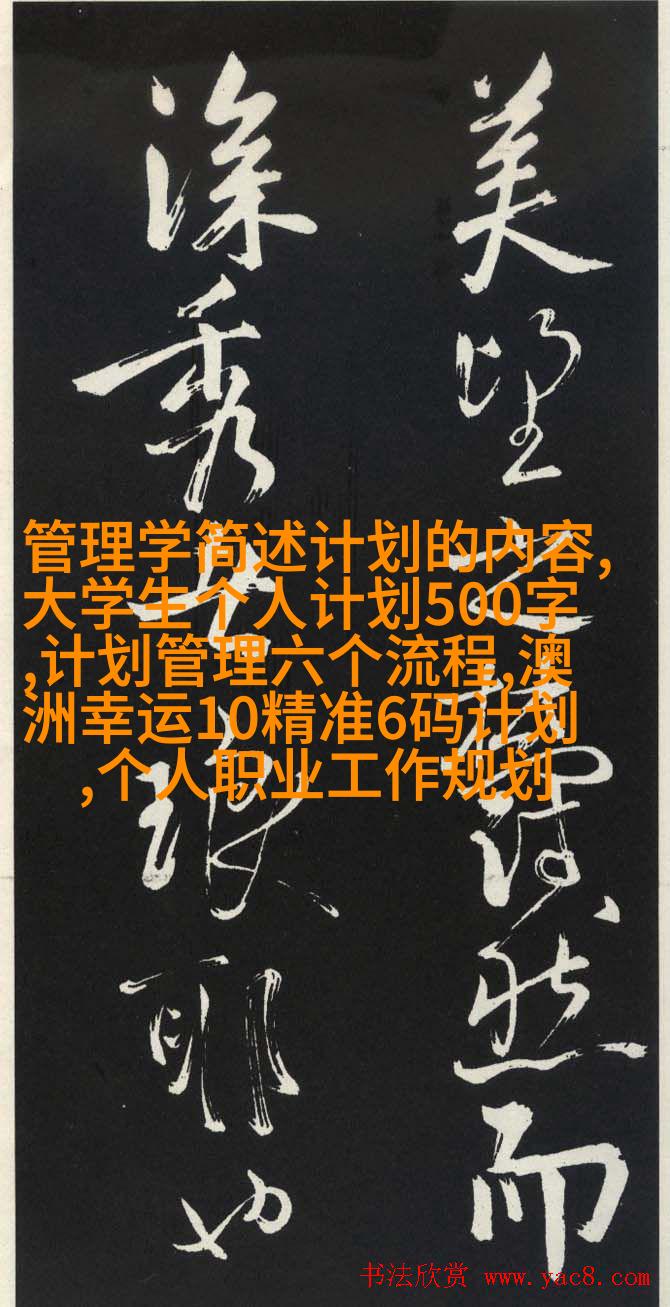 美望之蔚然而
深秀者琅耶也
管理学简述计划的内容,
大学生个人计划500字
,计划管理六个流程,澳
洲幸运10精准6码计划
,个人职业工作规划
书法欣赏 www.yac8.com